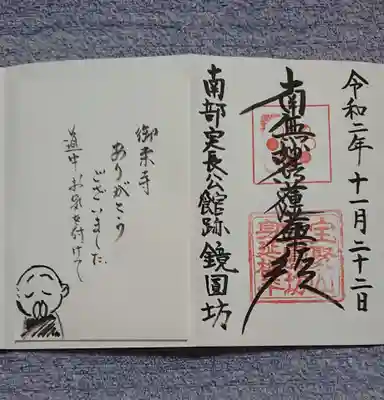 令和二年十一月二十二日
南無
南部実長公館跡 鏡圓坊
御来寺
ありがとう
ございました.
道中、お気を付けて